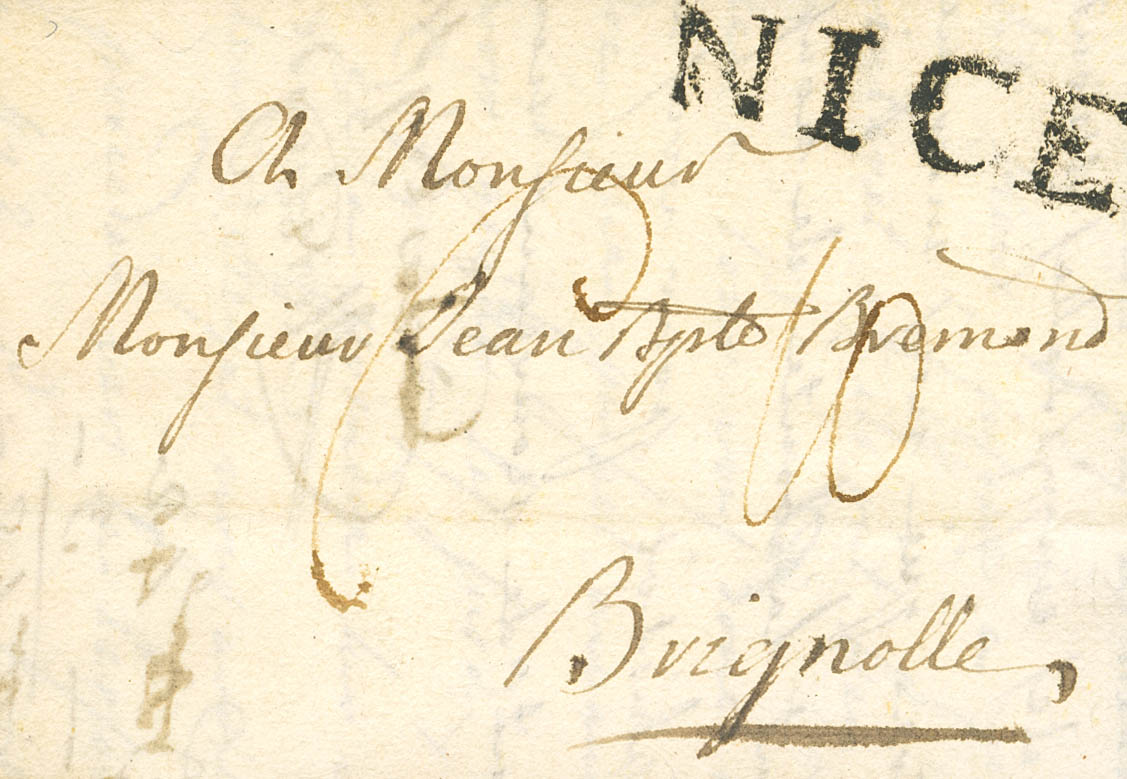 NICE
A Monsieur
Monsieur Jean Bpte Bremond
Brignolle,